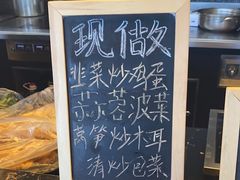 现做
韭菜炒鸡蛋
蒜蓉菠菜
莴笋炒木耳
清炒包菜